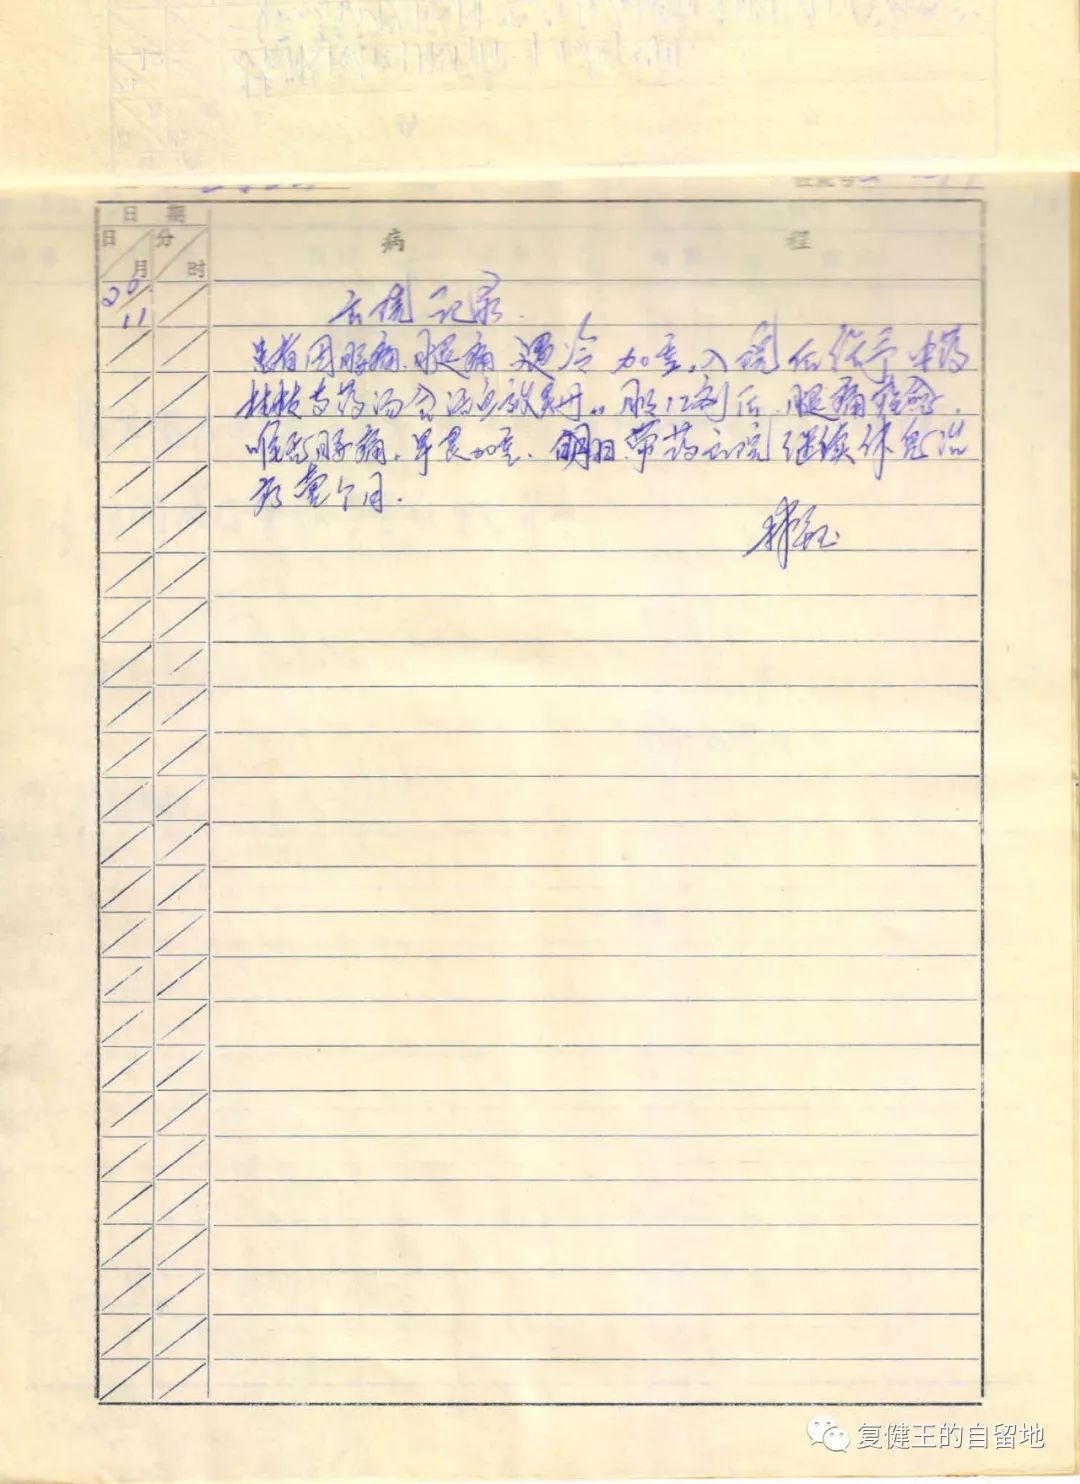 日 期
病 程
日 分
月 时
20
11
出院记录.
患者因腰痛.腿痛 遇冷 加重.入院后给予中药
桂枝芍药汤合活血效灵丹.. 服12剂后.腿痛痊愈.
唯感腰痛.早晨加重. 明日带药出院继续休息治
疗壹个月.
复健王的自留地